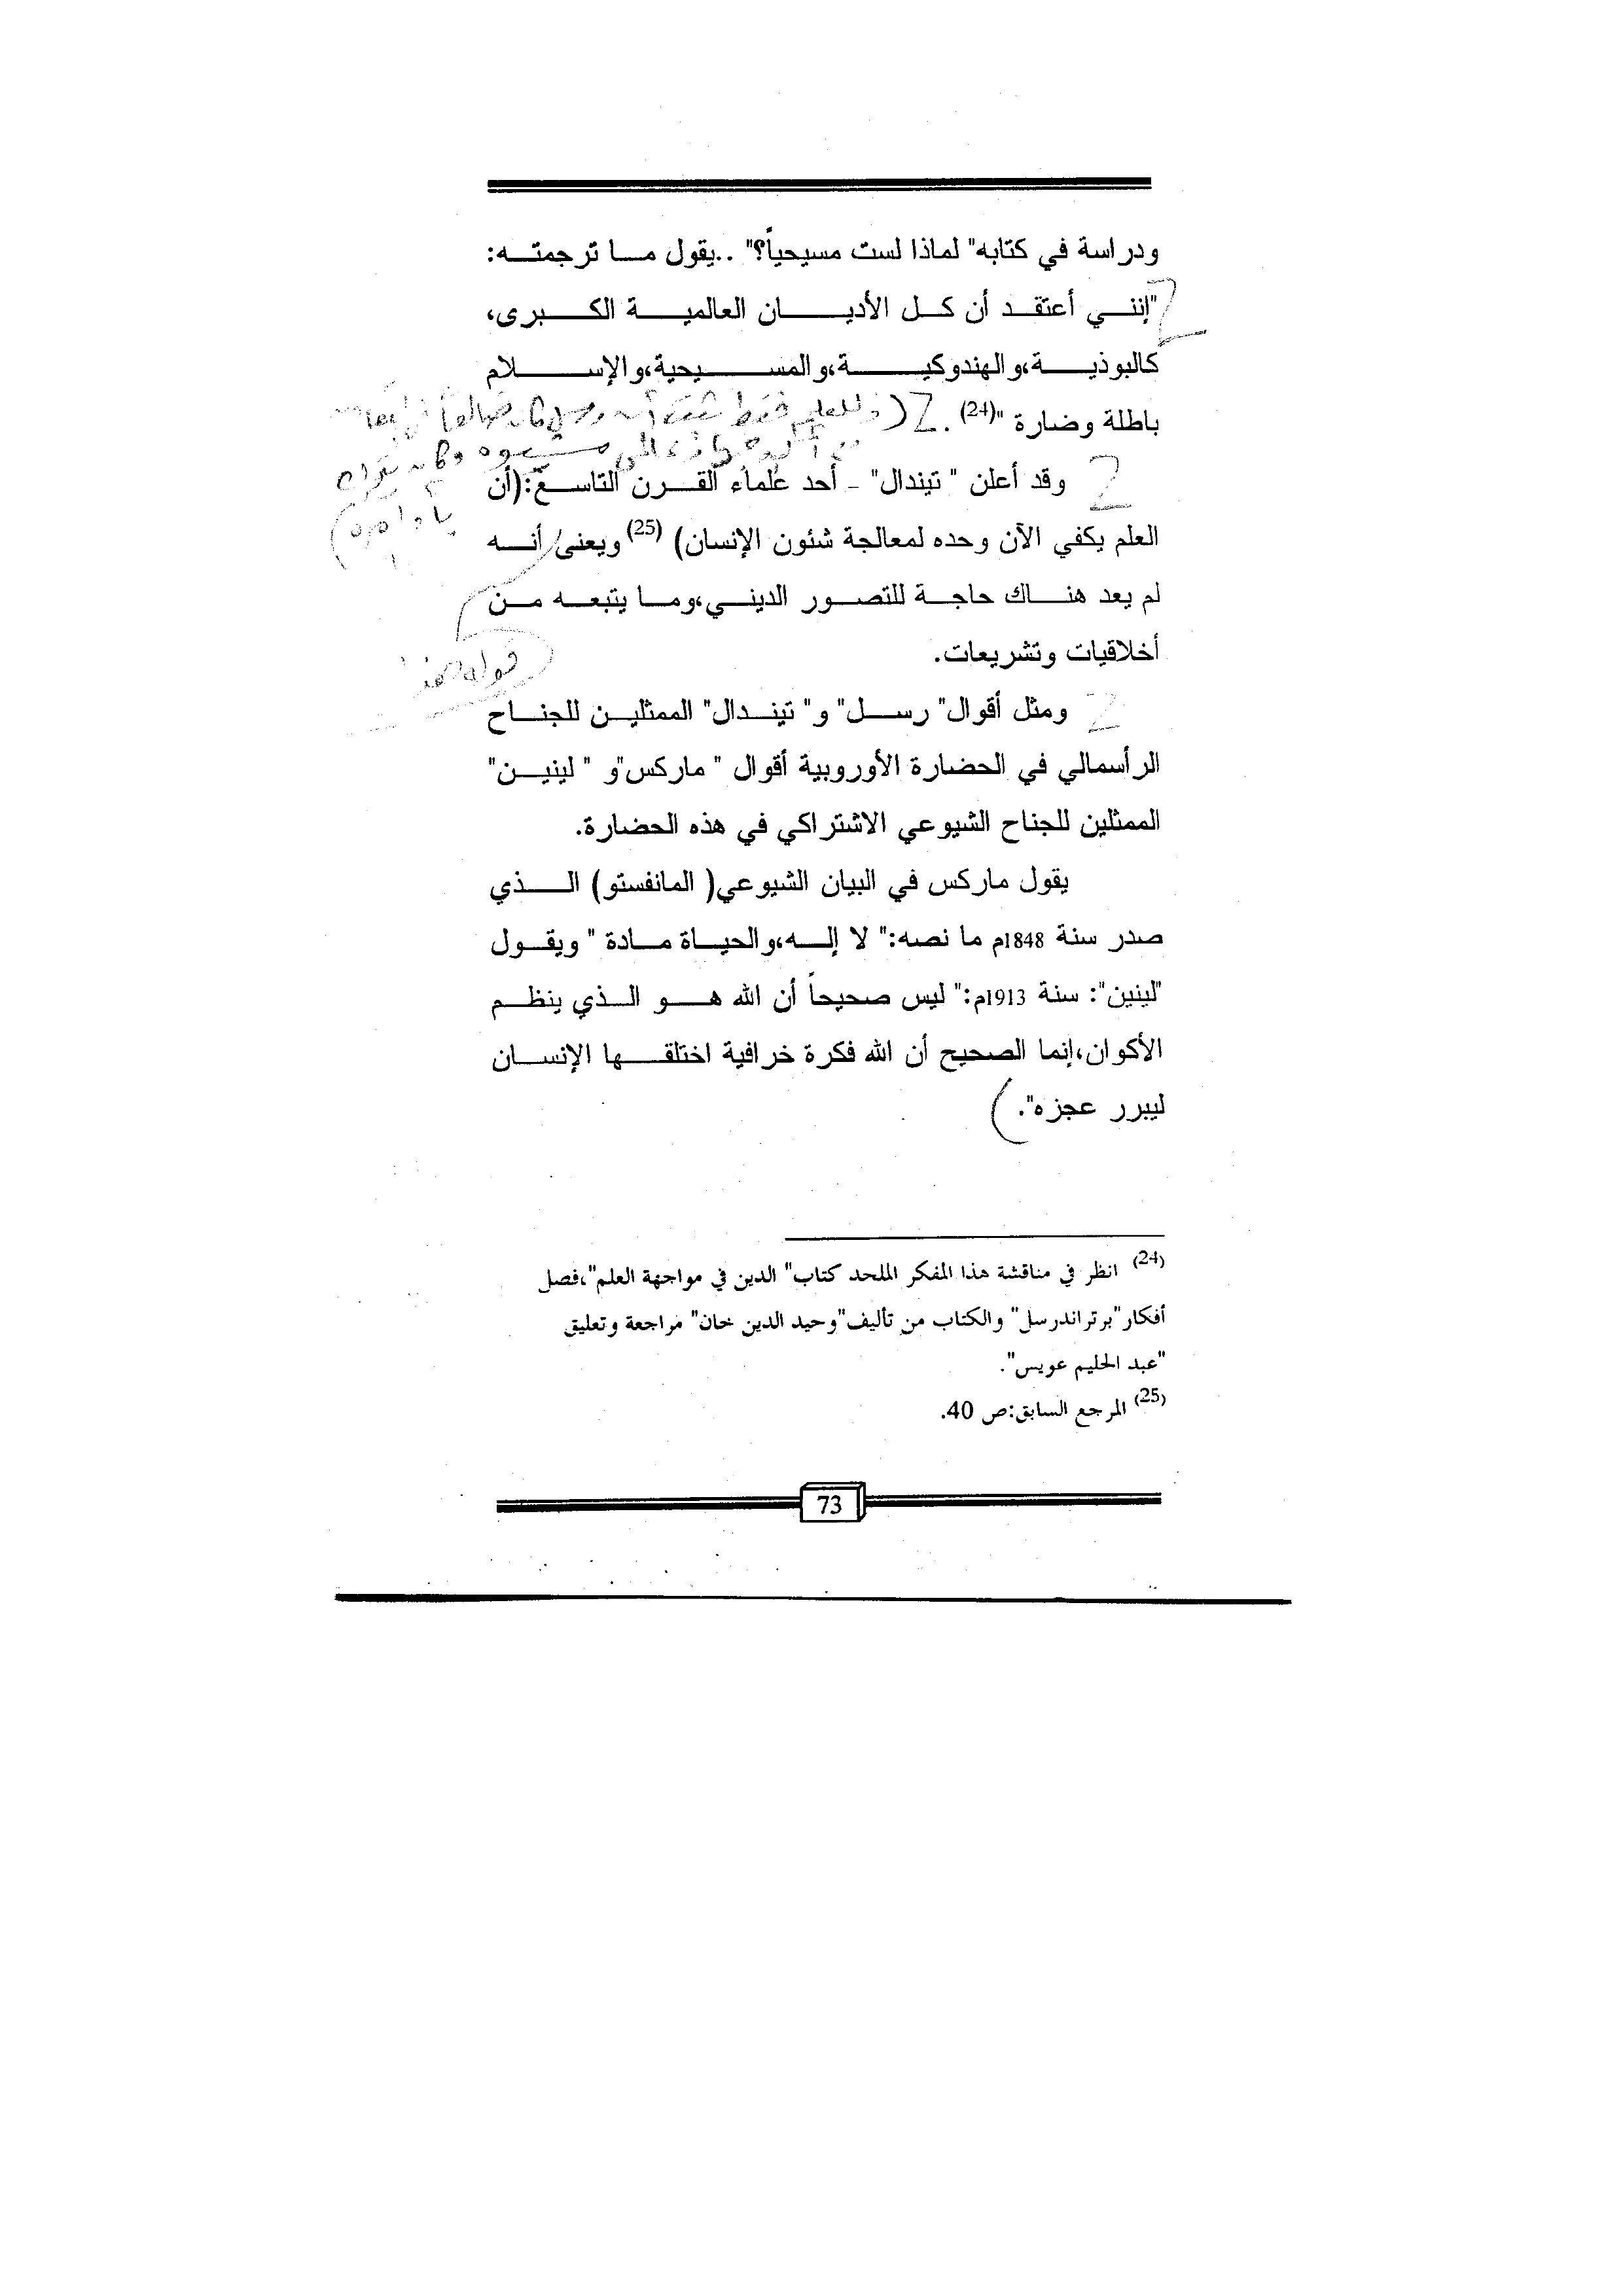 ودراسة في كتابه" لماذا لست مسيحياً؟" ..يقول ما ترجمته:
"إنني أعتقد أن كل الأديان العالمية الكبرى،
كالبوذية،والهندوكية،والمسيحية،والإسلام
باطلة وضارة "(24).
وقد أعلن " تيندال" - أحد علماء القرن التاسع:(أن
العلم يكفي الآن وحده لمعالجة شئون الإنسان) (25) ويعنى أنه
لم يعد هناك حاجة للتصور الديني،وما يتبعه من
أخلاقيات وتشريعات.
ومثل أقوال" رسل" و" تيندال" الممثلين للجناح
الرأسمالي في الحضارة الأوروبية أقوال " ماركس"و " لينين"
الممثلين للجناح الشيوعي الاشتراكي في هذه الحضارة.
يقول ماركس في البيان الشيوعي( المانفستو) الذي
صدر سنة 1848م ما نصه:" لا إله،والحياة مادة " ويقول
"لينين": سنة 1913م:" ليس صحيحاً أن الله هو الذي ينظم
الأكوان،إنما الصحيح أن الله فكرة خرافية اختلقها الإنسان
ليبرر عجزه".
(24) انظر في مناقشة هذا المفكر الملحد كتاب" الدين في مواجهة العلم"،فصل
أفكار"برتراندرسل" والكتاب من تأليف"وحيد الدين خان" مراجعة وتعليق
"عبد الحليم عويس".
(25) المرجع السابق:ص 40.
73